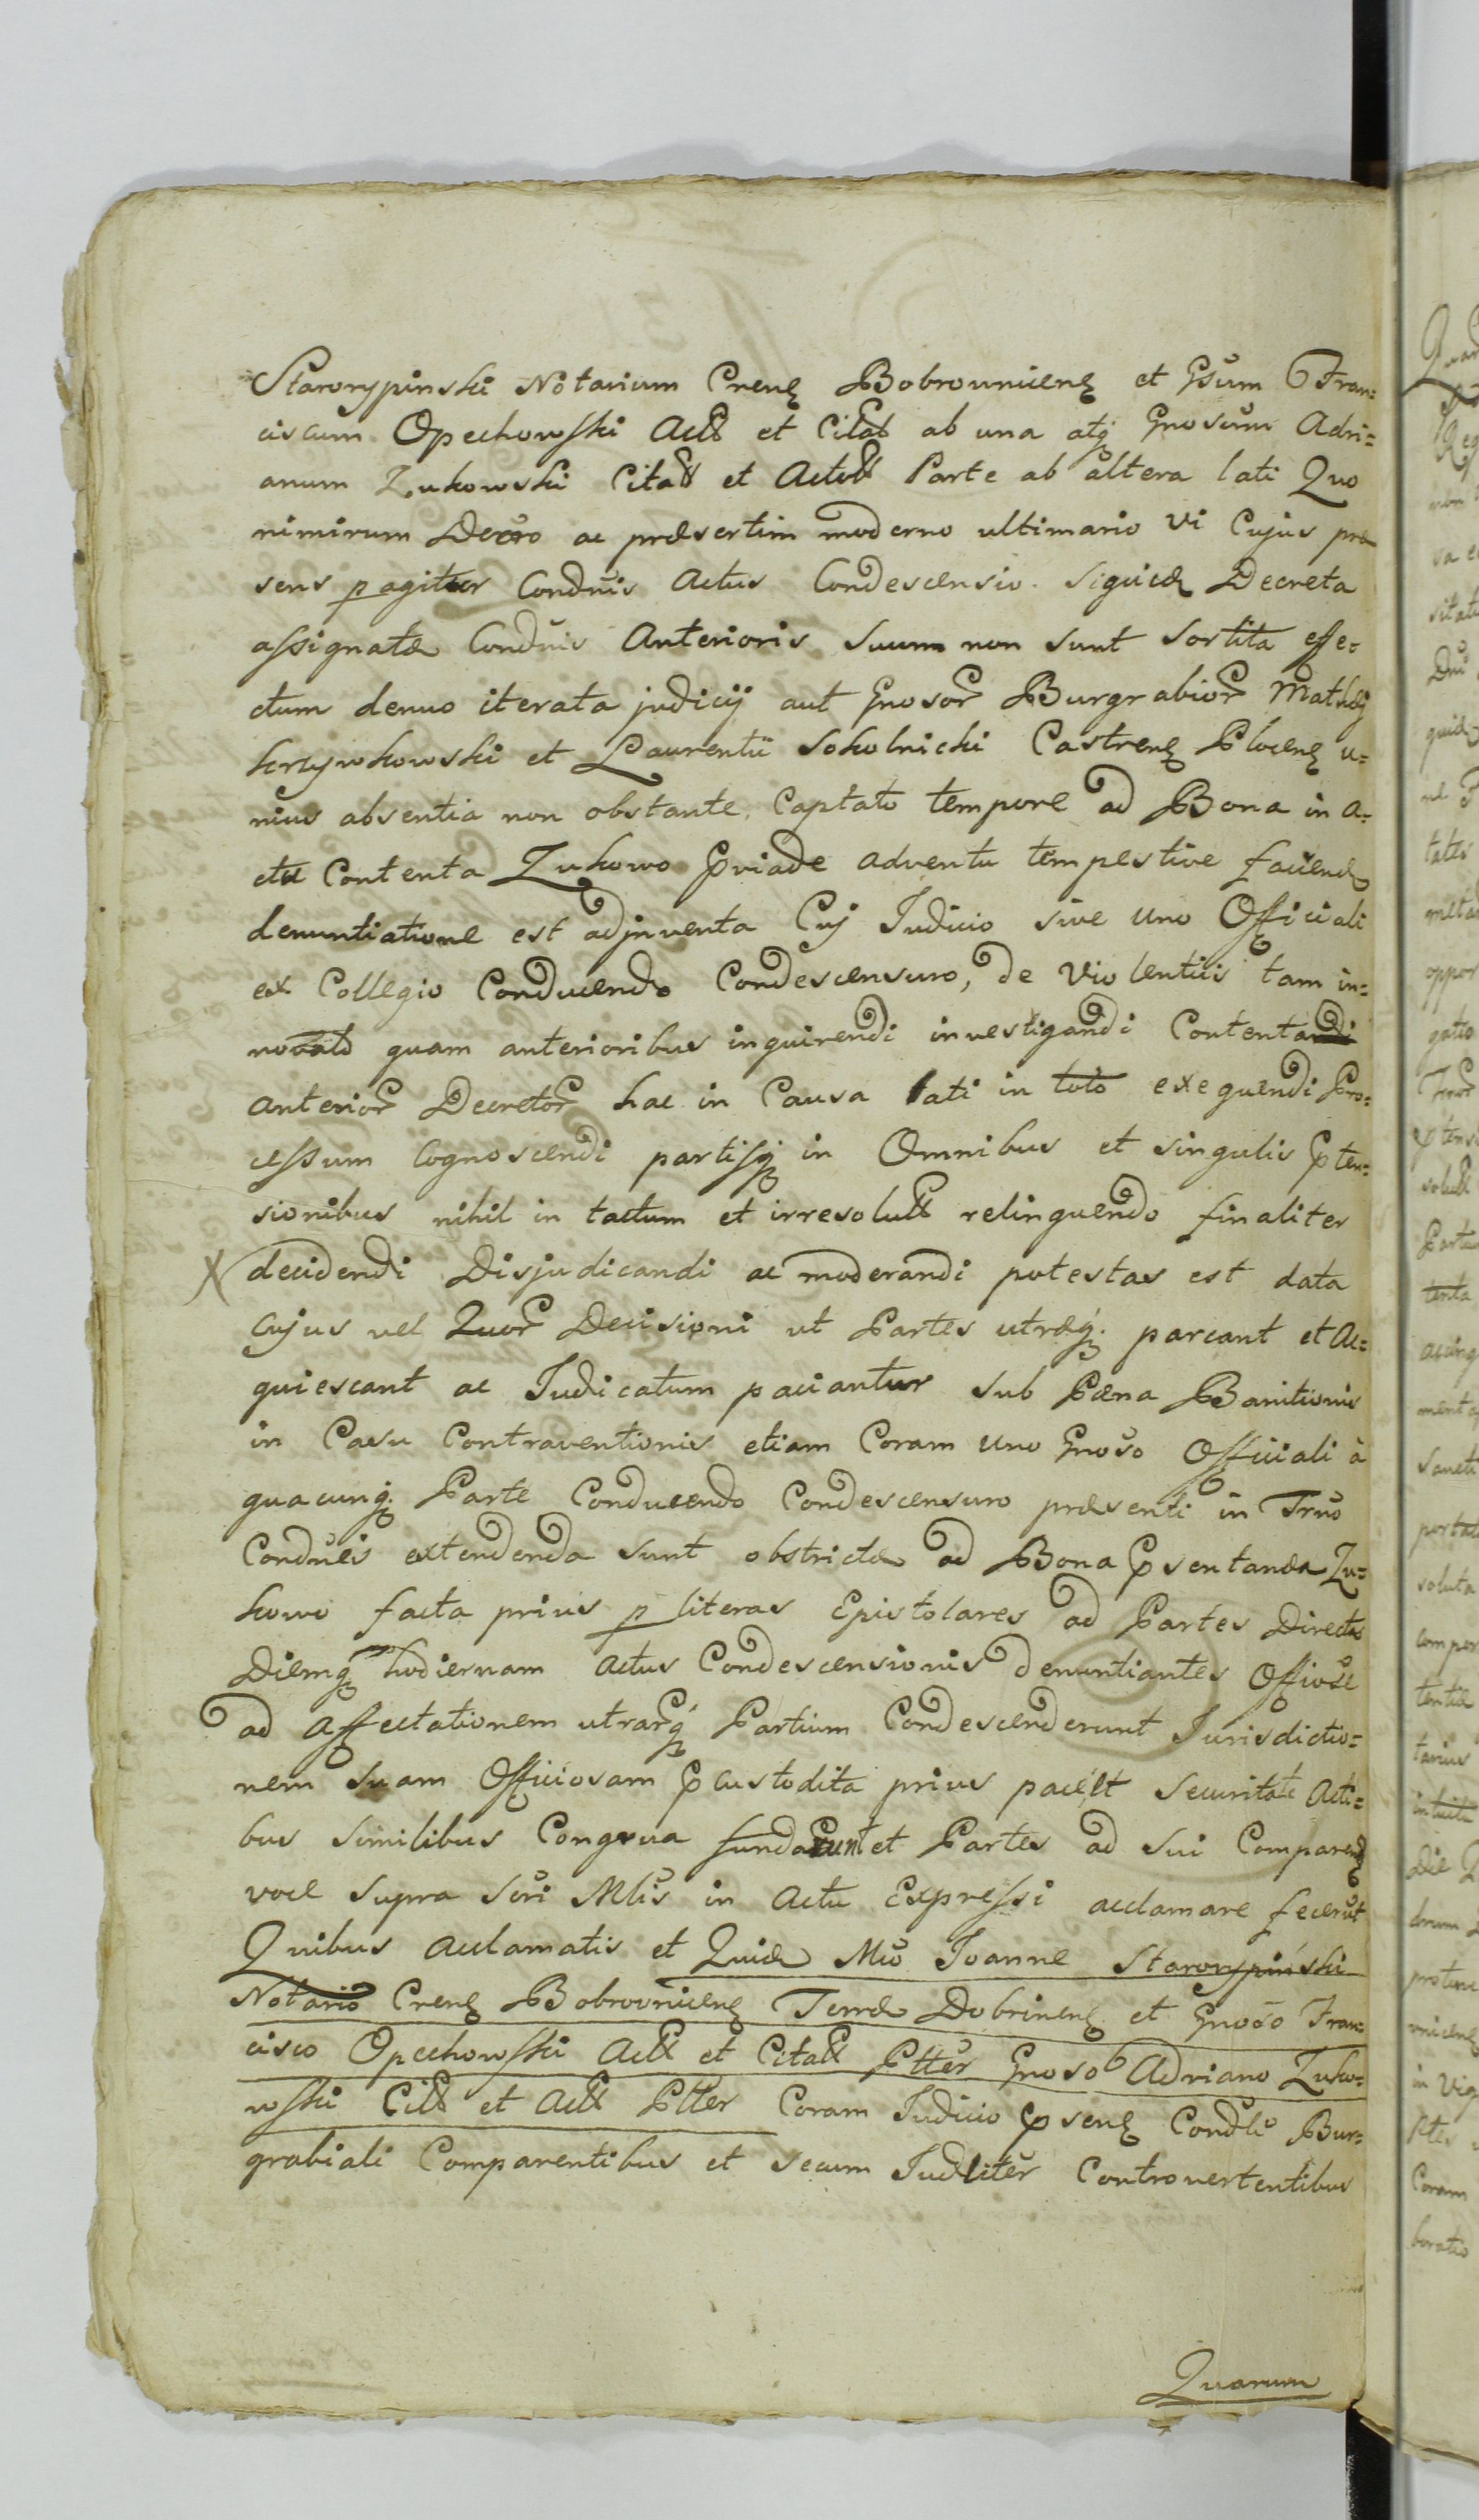 Starorypinski Notarium Crens Bobrownicens et Gsum Fran=
ciscum Opechowski Act et Citat ab una atq Gnosum Adri=
anum Zukowski Citat et Actor Parte ab altera lati Quo
nimirum Decro ac præsertim moderno ultimario vi Cujus præ
sens pagitur Condnis Actus Condescensio. siquidæ Decreta
assignatæ Condnis Anterioris suum non sunt sortita effe=
ctum denuo iterata judicij aut Gnosor Burgrabior Mathæj
Krzywkowski et Laurentii Sokolnicki Castrens Plocens u=
nius absentia non obstante, Captato tempore ad Bona in a=
ctu Contenta Zukowo pviade adventu tempestive faciend
denuntiatione est adjnventa Cuj Judicio sive uno Officiali
ex Collegio Conducendo Condescensuro, de Violentiis tam in=
novato quam anterioribus inquirendi investigandi Contentandi
anterior Decretor hac in Causa lati in toto exequendi Pro=
cessum Cognoscendi partisq in Omnibus et singulis pten=
sionibus nihil in tactum et irresolut relinquendo finaliter
X decidendi Disjudicandi ac moderandi potestas est data
cujus vel Quor Decisioni ut Partes utræq. pareant et Ac=
quiescant ac Judicatum paciantur sub Pæna Banitionis
in Casu Contraventionis etiam Coram uno Gnoso Officiali à
quacunq. Parte Conducendo Condescensuro præsenti in Trno
Condnis extendenda sunt obstrictæ ad Bona psentanda Zu=
kowo facta prius p literas Epistolares ad Partes Directas
Diemq hodiernam Actus Condescensionis denuntiantes Offiose
ad affectationem utrarq Partium Condescenderunt Jurisdictio=
nem suam Officiosam pcustodita prius paciet securitate Acti=
bus similibus Congrua fundarunt et Partes ad sui Comparend
voce supra Scri Mlis in Actu Expressi acclamare fecerut
Quibus acclamatis et Quidæ Mco Joanne Starorypiński
Notario Crens Bobrovnicens Terræ Dobrinens et Gnoso Fran=
cisco Opechowski Act et Citat Ptter Gnoso Adriano Zuko=
wski Cit et Act Ptter Coram Judicio psens Condli Bur=
grabiali Comparentibus et secum Judliter Controvertentibus
Quarum